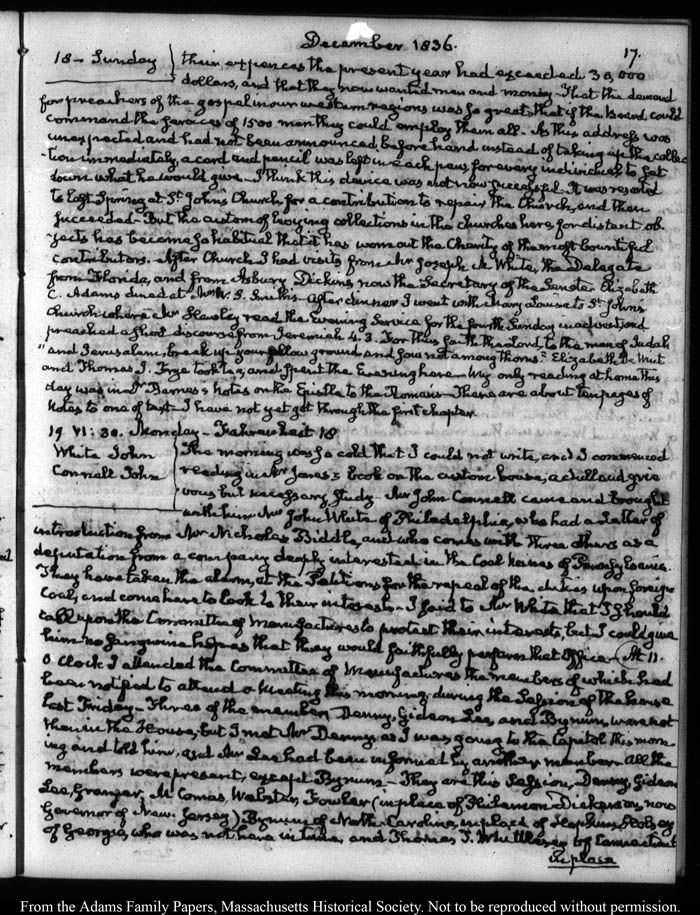 December 1836.
17.
18 - Sunday
their expences the present year had exceeded 30,000
dollars, and that they now wanted men and money - That the demand
for preachers of the gospel in our western regions was so great, that if the Board could
command the services of 1500 men they could employ them all. As this address was
unexpected and had not been announced before hand instead of taking up the collec
-tion immediately, a card and pencil was left in each pew for every individual to set
down what he would give - I think this device was not now successful. It was resorted
to last Spring at St. Johns Church, for a contribution to repair the Church, and then
succeeded - But the custom of levying collections in the churches here for distant ob-
jects has become so habitual that it has worn out the Charity of the most bountiful
contributors. After Church I had visits from Mr Joseph M. White, the Delegate
from Florida, and from Asbury Dickins, now the Secretary of the Senate. Elizabeth
C. Adams dined at Mr W. S. Smith's - after dinner I went with Mary Louisa to St. John's
Church where Mr Hawley read the Evening Service for the fourth Sunday in advent, and
preached a short discourse from Jeremiah 4.3. For thus saith the Lord, to the men of Judah
" and Jerusalem, break up your fallow ground and sow not among thorns." Elizabeth De Wint
and Thomas J. Frye took tea, and spent the Evening here - My only reading at home this
day was in Mr Barnes's Notes on the Epistle to the Romans - There are about ten pages of
Notes to one of text - I have not yet got through the first chapter.
19. VI:30. Monday - Fahrenheit 18
White John
Connell John
The morning was so cold that I could not write, and I commenced
reading in Mr Jones's book on the custom house, a dull and grie
vous but necessary study. Mr John Connell came and brought
with him Mr John White of Philadelphia, who had a Letter of
introduction from Mr Nicholas Biddle, and who comes with three others as a
deputation from a company deeply interested in the Coal Mines of Pennsylvania.
They have taken the alarm, at the Petitions for the repeal of the duties upon foreign
Coal, and come here to look to their interests - I said to Mr White that I should
call upon the Committee of Manufactures to protect their interests, but I could give
him no sanguine hopes that they would faithfully perform that Office - At 11.
O'Clock I attended the Committee of Manufactures the members of which had
been notified to attend a Meeting this morning, during the Session of the house
last Friday - Three of the members, Denny, Gideon Lee, and Bynum, were not
then in the House, but I met Mr Denny as I was going to the Capitol this morn
ing and told him, and Mr Lee had been informed by another member. All the
members were present, except Bynum - They are this Session, Denny, Gideon
Lee, Granger, McComas, Webster, Fowler (in place of Philemon Dickerson, now
Governor of New Jersey) Bynum of North Carolina, in place of Hopkins Holsey
of Georgia, who was not here in time, and Thomas T. Whittlesey of Connecticut
in place
From the Adams Family Papers, Massachusetts Historical Society. Not to be reproduced without permission.